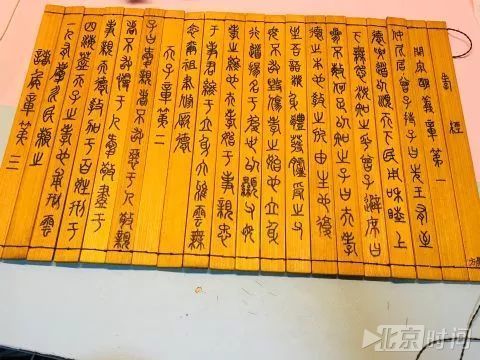 孝經
開宗明義章第一
仲尼居曾子侍子曰先王有至
德要道以順天下民用和睦上
下無怨汝知之乎曾子避席曰
參不敏何足以知之子曰夫孝
德之本也教之所由生也復
坐吾語汝身體髮膚受之父
母不敢毀傷孝之始也立身
行道揚名于後世以顯父母
孝之終也夫孝始于事親忠
于事君終于立身大雅雲無
念爾祖聿修厥德
天子章第二
子曰愛親者不敢惡于人敬親
者不敢慢于人愛敬盡于
事親而德教加于百姓刑于
四海蓋天子之孝也甫刑雲
一人有慶兆民賴之
諸侯章第三
北京时间